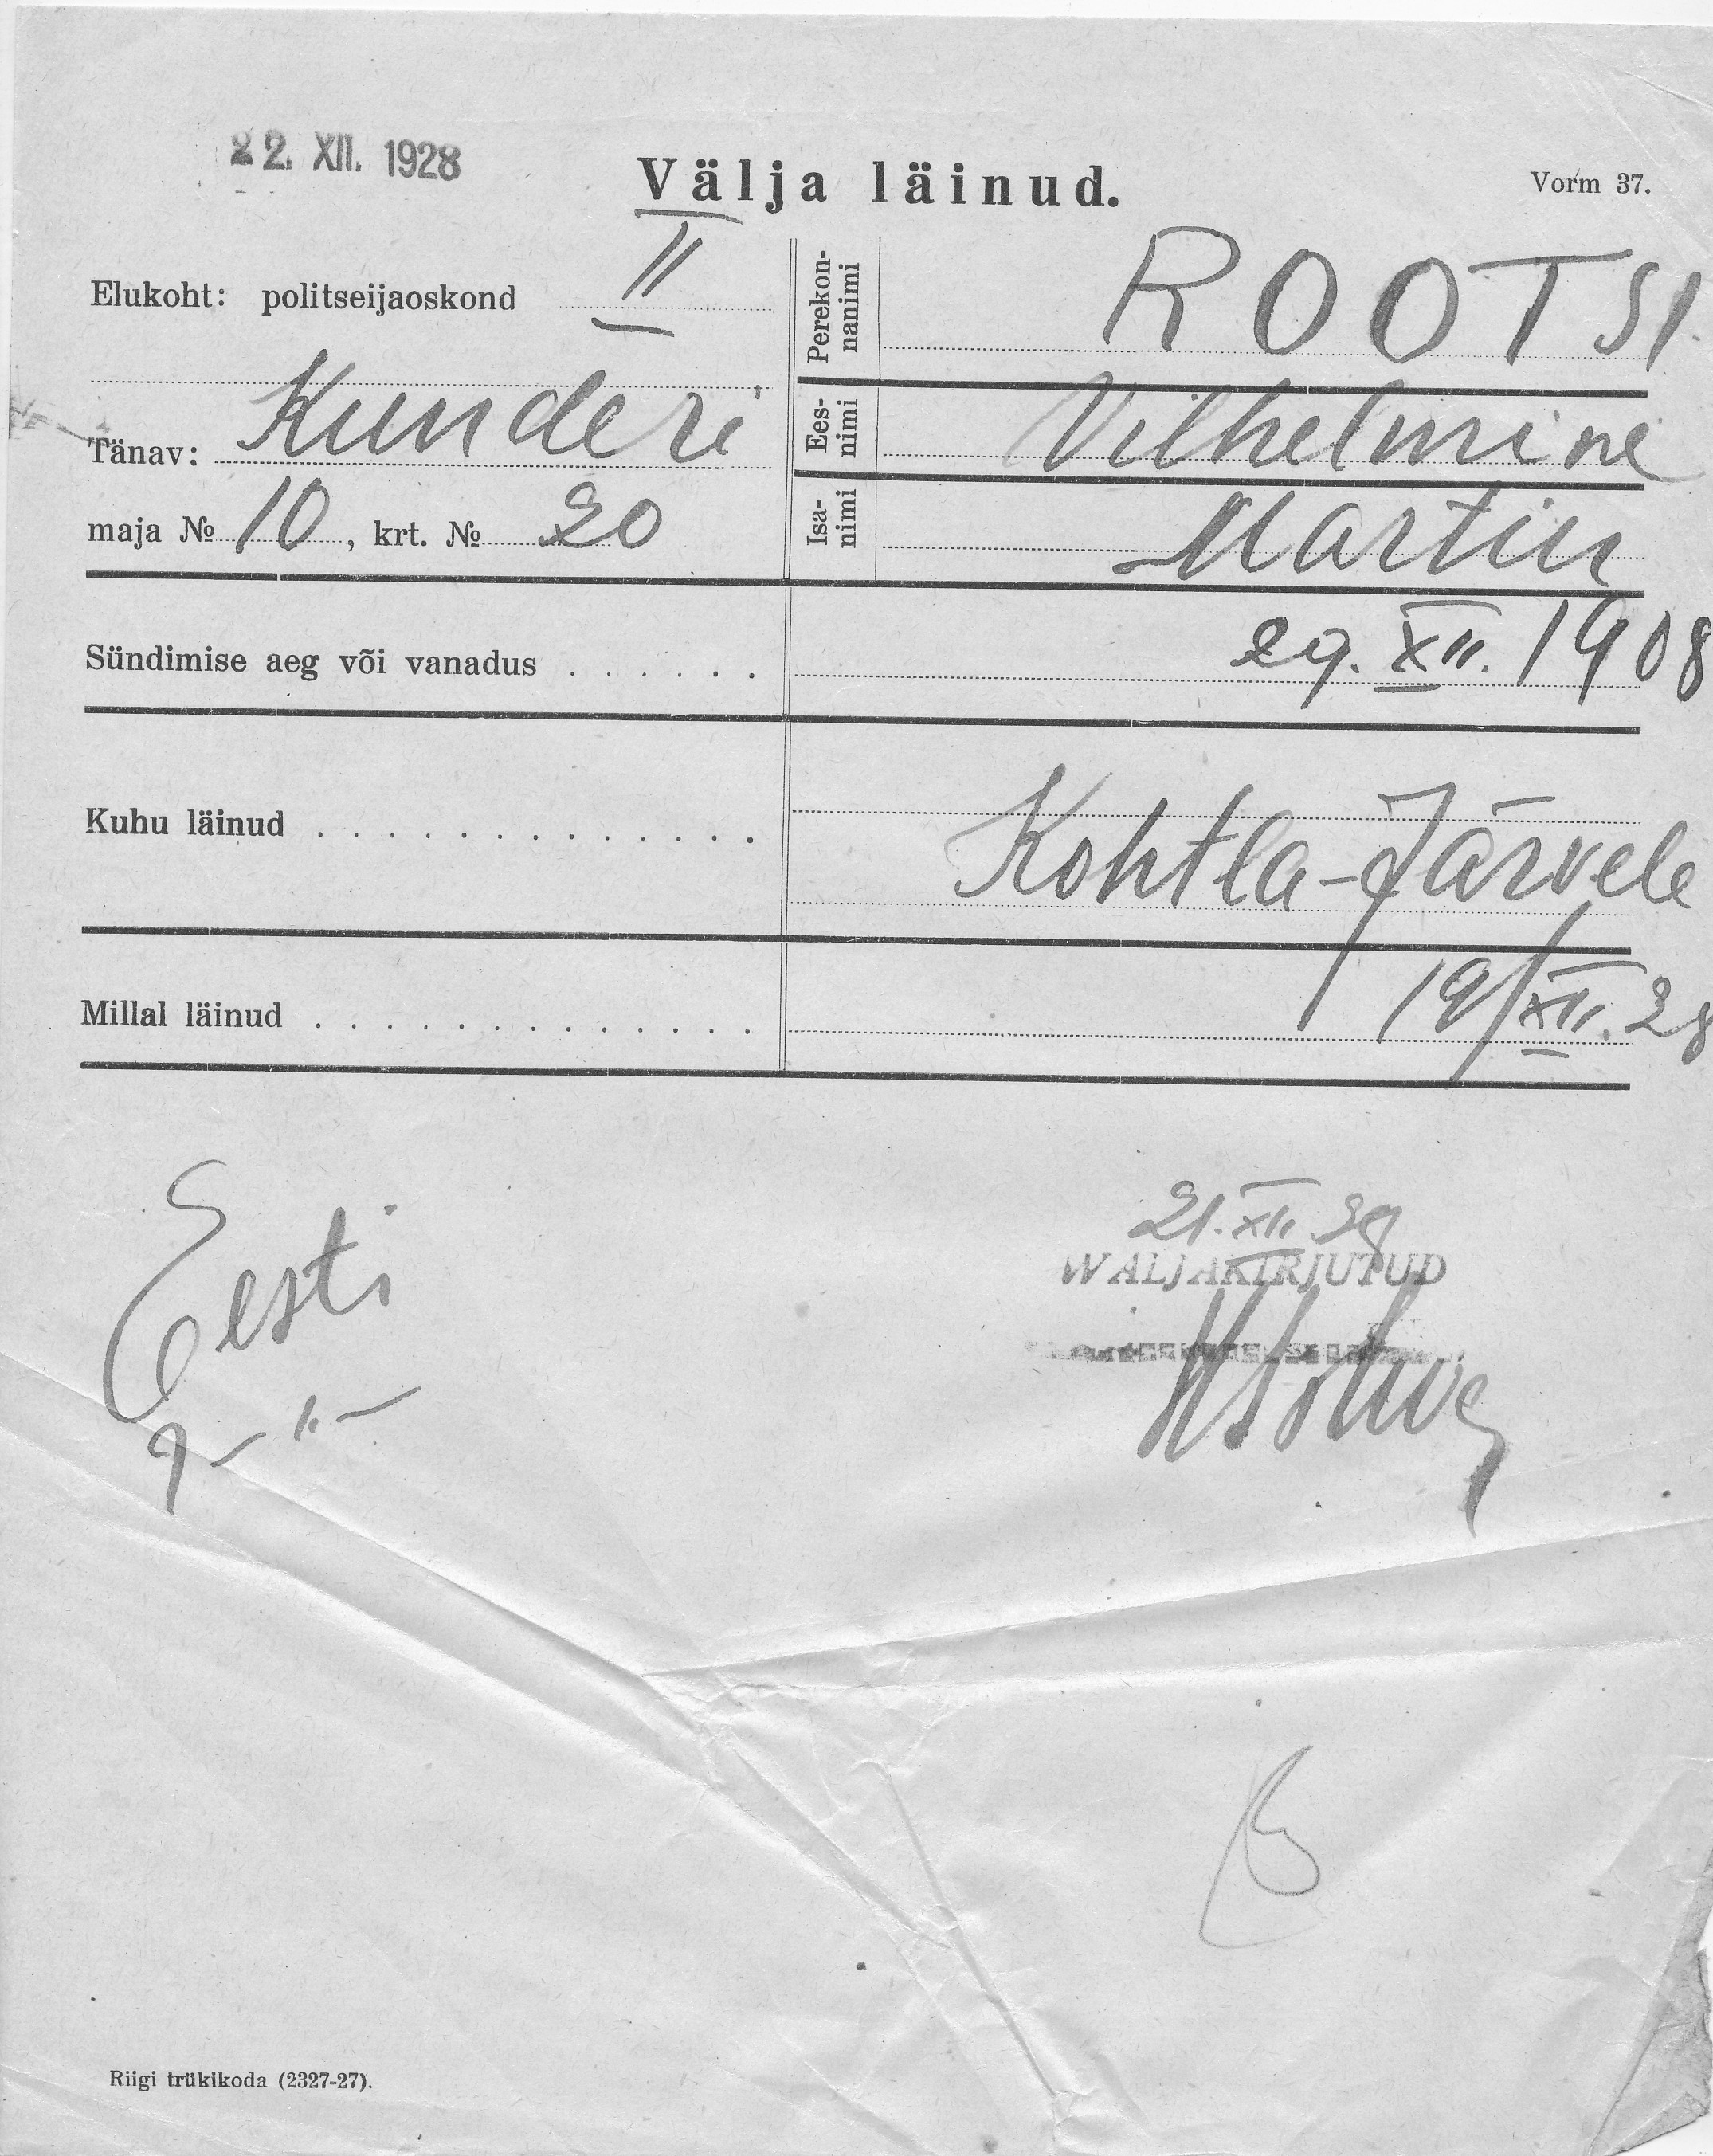 22. XII. 1928
Välja läinud.
Vorm 37.
Elukoht: politseijaoskond II
Tänav: Kunderi
maja № 10, krt. № 20
Perekon-
nanimi
ROOTSI
Ees-
nimi
Vilhelmine
Isa-
nimi
Martin
Sündimise aeg või vanadus . . . . . .
29. XII. 1908
Kuhu läinud . . . . . . . . . . . . . .
Kohtla-Järvele
Millal läinud . . . . . . . . . . . . . .
19/XII. 28
Eesti
21. XII.
WALJAKIRJUTUD
Riigi trükikoda (2327-27).